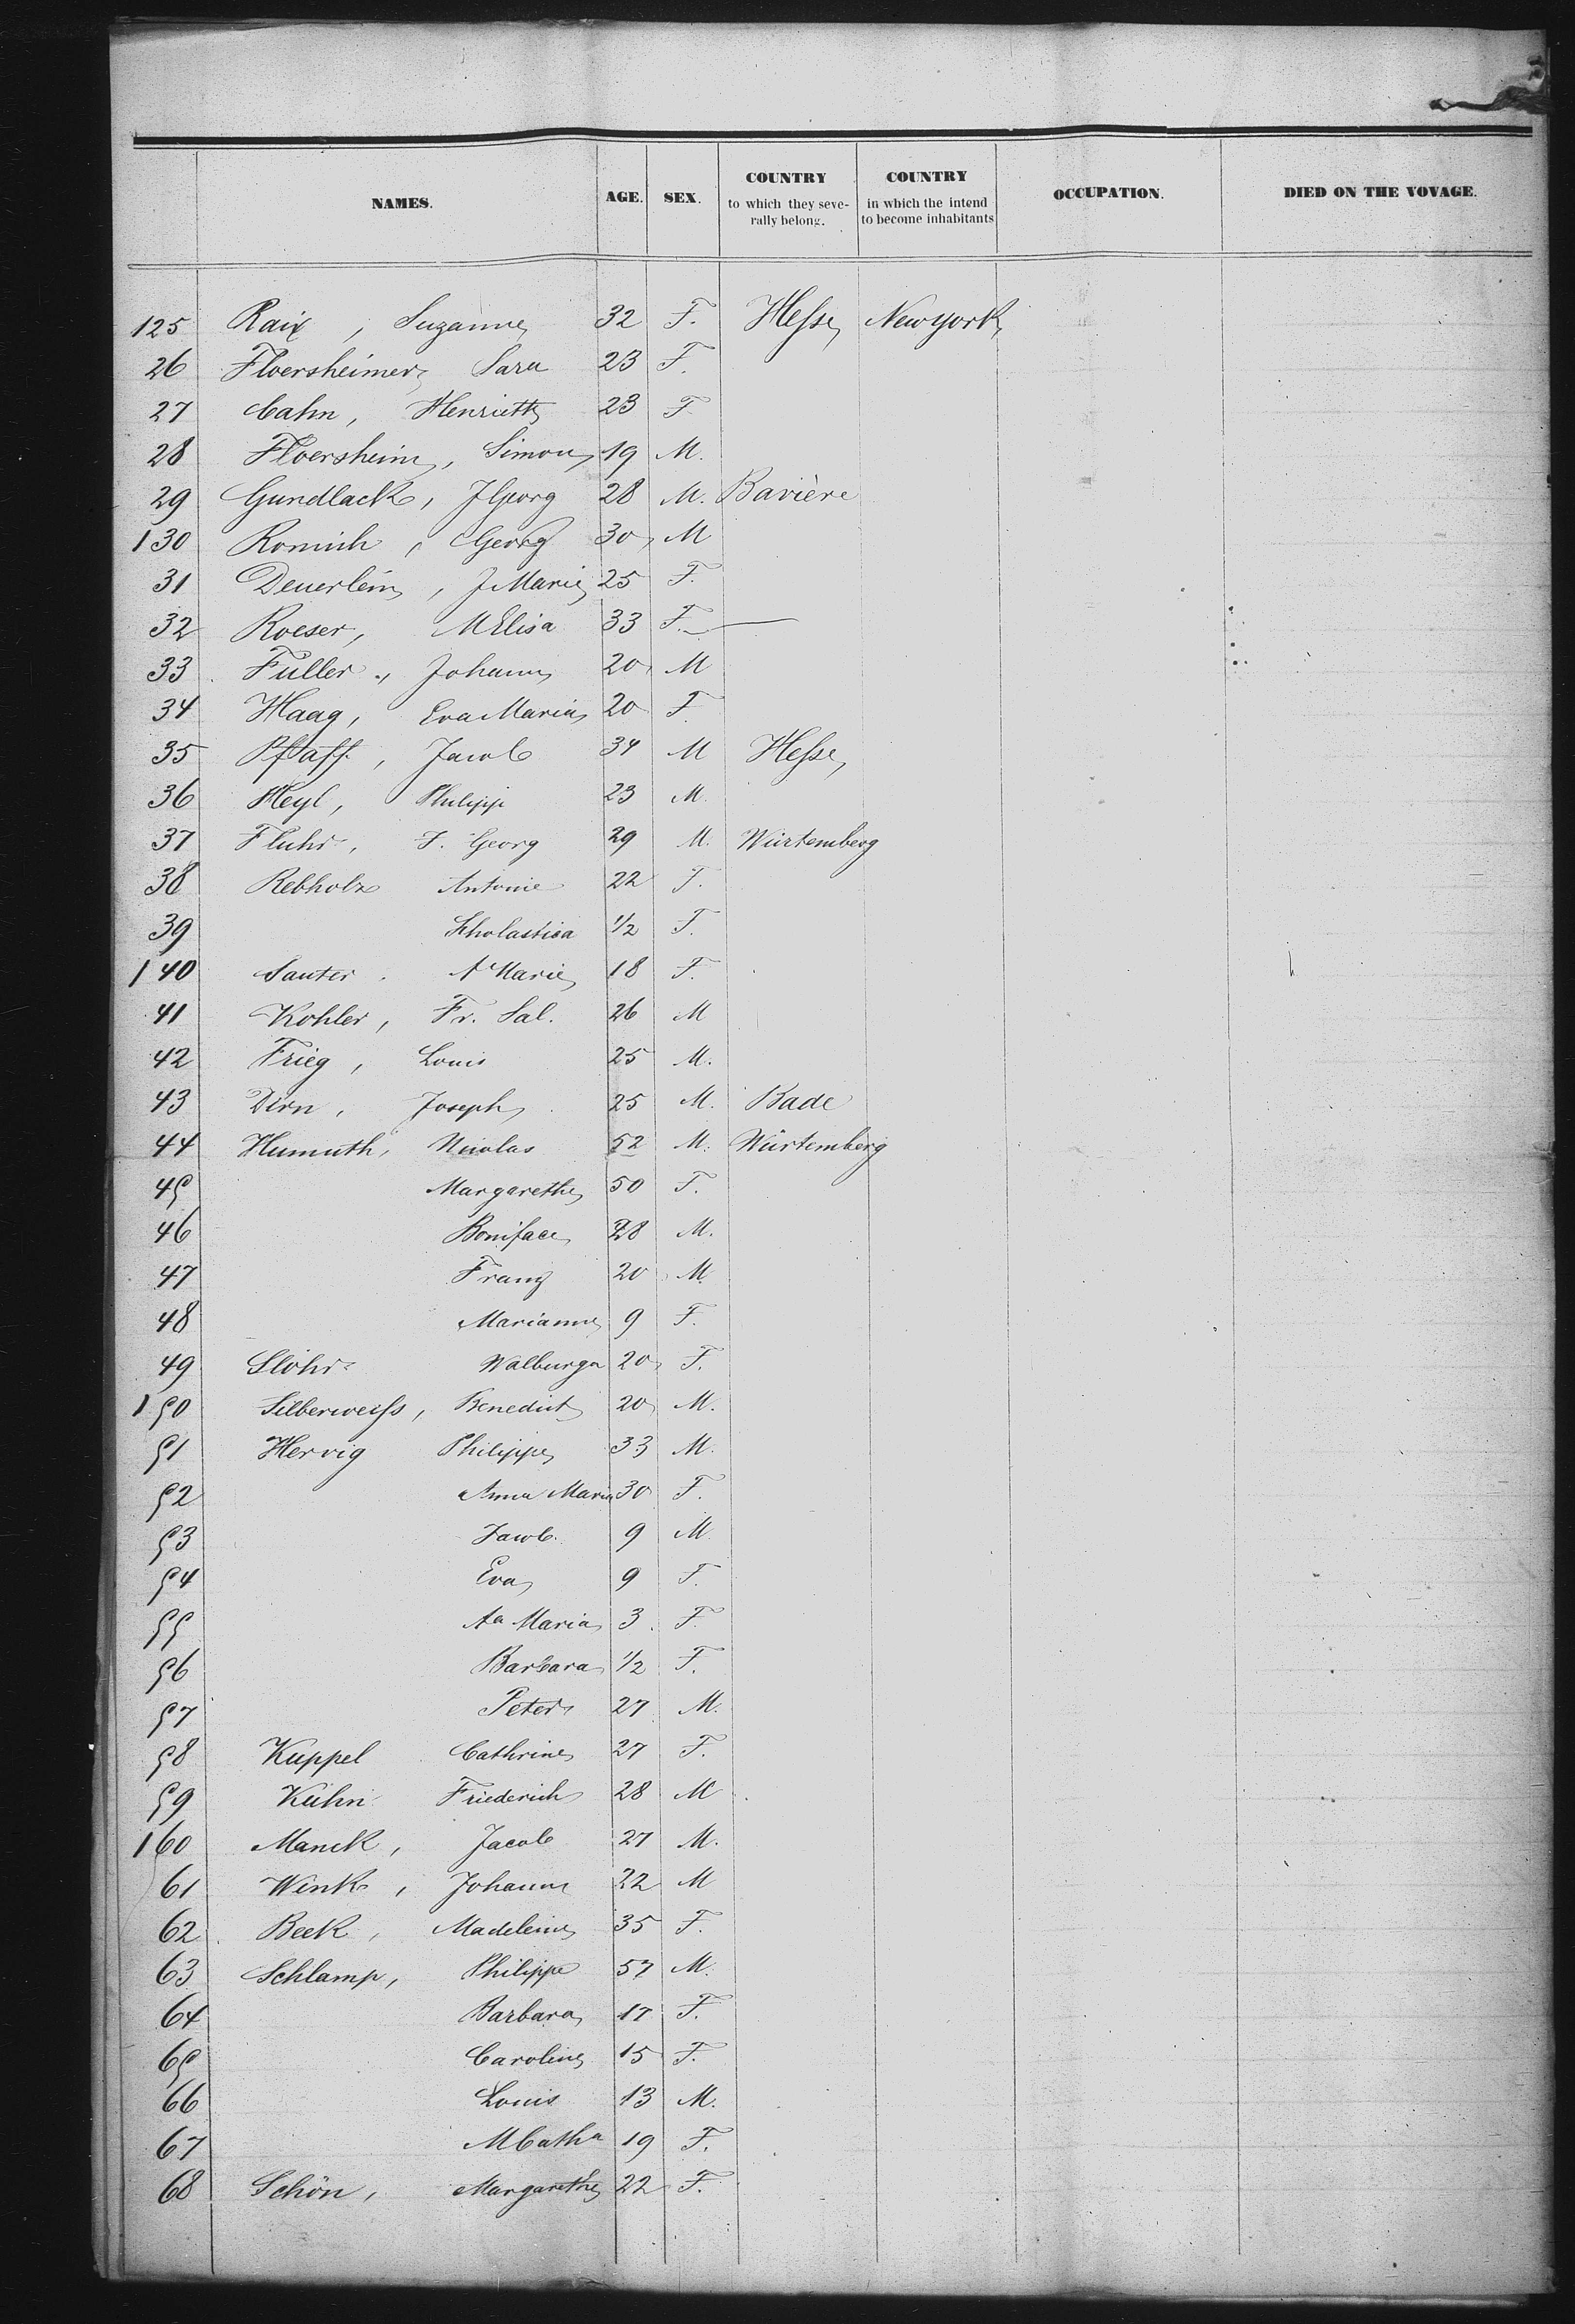 NAMES. AGE. SEX. COUNTRY to which they seve- rally belong. COUNTRY in which the intend to become inhabitants OCCUPATION. DIED ON THE VOVAGE.
125 Raix, Suzanne 32 F. Hesse New York
26 Floersheimer Sara 23 F.
27 Cahn, Henriette 23 F
28 Floersheim, Simon 19 M.
29 Gundlack, J Georg 28 M. Bavière
130 Romich, Georg 30 M
31 Deuerlein, J Marie 25 F.
32 Roeser, M Elisa 33 F. —
33 Fuller, Johann 20 M
34 Haag, Eva Maria 20 F
35 Pfaff, Jacob 34 M Hesse
36 Heyl, Philipp 23 M.
37 Fluhr, J. Georg 29 M. Würtemberg
38 Rebholz Antonie 22 F.
39 Scholastica 1/2 F.
140 Sauter. A Marie 18 F.
41 Kohler, Fr. Sal. 26 M
42 Frieg, Louis 25 M.
43 Dirn, Joseph 25 M. Bade
44 Humuth, Nicolas 52 M. Würtemberg
45 Margarethe 50 F.
46 Boniface 28 M.
47 Franz 20 M.
48 Marianne 9 F.
49 Slöhr Walburga 20 F.
150 Silberweiss, Benedict 20 M.
51 Hervig Philippe 33 M.
52 Anna Maria 30 F.
53 Jacob 9 M
54 Eva 9 F.
55 Aa Maria 3 F.
56 Barbara 1/2 F.
57 Peter 27 M.
58 Kuppel Cathrine 27 F.
59 Kühn Friederich 28 M
160 Manck, Jacob 27 M.
61 Wink, Johann 22 M
62 Beck, Madeleine 35 F.
63 Schlamp, Philippe 57 M.
64 Barbara 17 F.
65 Caroline 15 F.
66 Louis 13 M.
67 M Catha 19 F.
68 Schön, Margarethe 22 F.